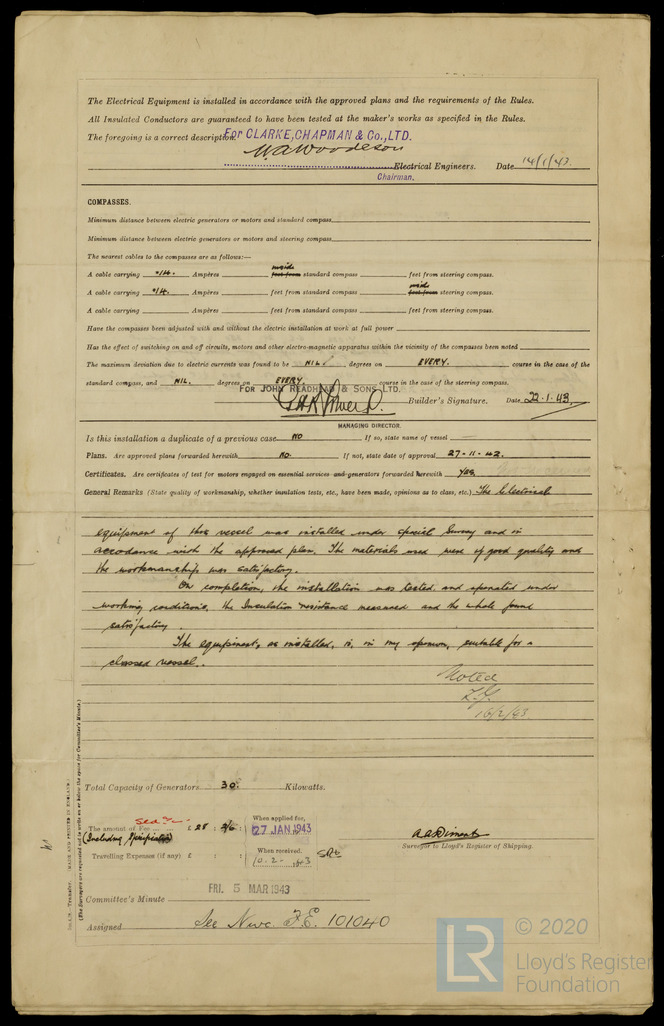 The Electrical Equipment is installed in accordance with the approved plans and the requirements of the Rules.
All Insulated Conductors are guaranteed to have been tested at the maker's works as specified in the Rules.
The foregoing is a correct description.
For CLARKE, CHAPMAN & Co., LTD.
W A Woodeson
Electrical Engineers. Date 14/1/43.
Chairman.
COMPASSES.
Minimum distance between electric generators or motors and standard compass
Minimum distance between electric generators or motors and steering compass
The nearest cables to the compasses are as follows:—
inside
A cable carrying .14. Ampères feet from standard compass feet from steering compass.
inside
A cable carrying .14. Ampères feet from standard compass feet from steering compass.
A cable carrying Ampères feet from standard compass feet from steering compass.
Have the compasses been adjusted with and without the electric installation at work at full power
Has the effect of switching on and off circuits, motors and other electro-magnetic apparatus within the vicinity of the compasses been noted
The maximum deviation due to electric currents was found to be NIL. degrees on EVERY. course in the case of the
standard compass, and NIL. degrees on EVERY. course in the case of the steering compass.
FOR JOHN READHEAD & SONS LTD.
Builder's Signature. Date 22.1.43.
MANAGING DIRECTOR.
Is this installation a duplicate of a previous case NO If so, state name of vessel
Plans. Are approved plans forwarded herewith NO. If not, state date of approval 27.11.42.
Certificates. Are certificates of test for motors engaged on essential services and generators forwarded herewith Yes.
General Remarks (State quality of workmanship, whether insulation tests, etc., have been made, opinions as to class, etc.) The Electrical
equipment of this vessel was installed under special survey and in
accordance with the approved plan. The materials used were of good quality and
the workmanship was satisfactory.
On completion, the installation was tested and operated under
working conditions, the Insulation resistance measured and the whole found
satisfactory.
The equipment, as installed, is, in my opinion, suitable for a
classed vessel.
Noted
16/2/43.
Total Capacity of Generators 30. Kilowatts.
The amount of Fee £ 28 :
(Including Specification)
When applied for,
27 JAN 1943
When received,
10.2.1943
Travelling Expenses (if any) £ : :
Surveyor to Lloyd's Register of Shipping.
Committee's Minute FRI. 5 MAR 1943
Assigned See Nwc F.E. 101040
(The Surveyors are requested not to write on or below the space for Committee's Minute.)
(MADE AND PRINTED IN ENGLAND.)
LR © 2020
Lloyd's Register
Foundation